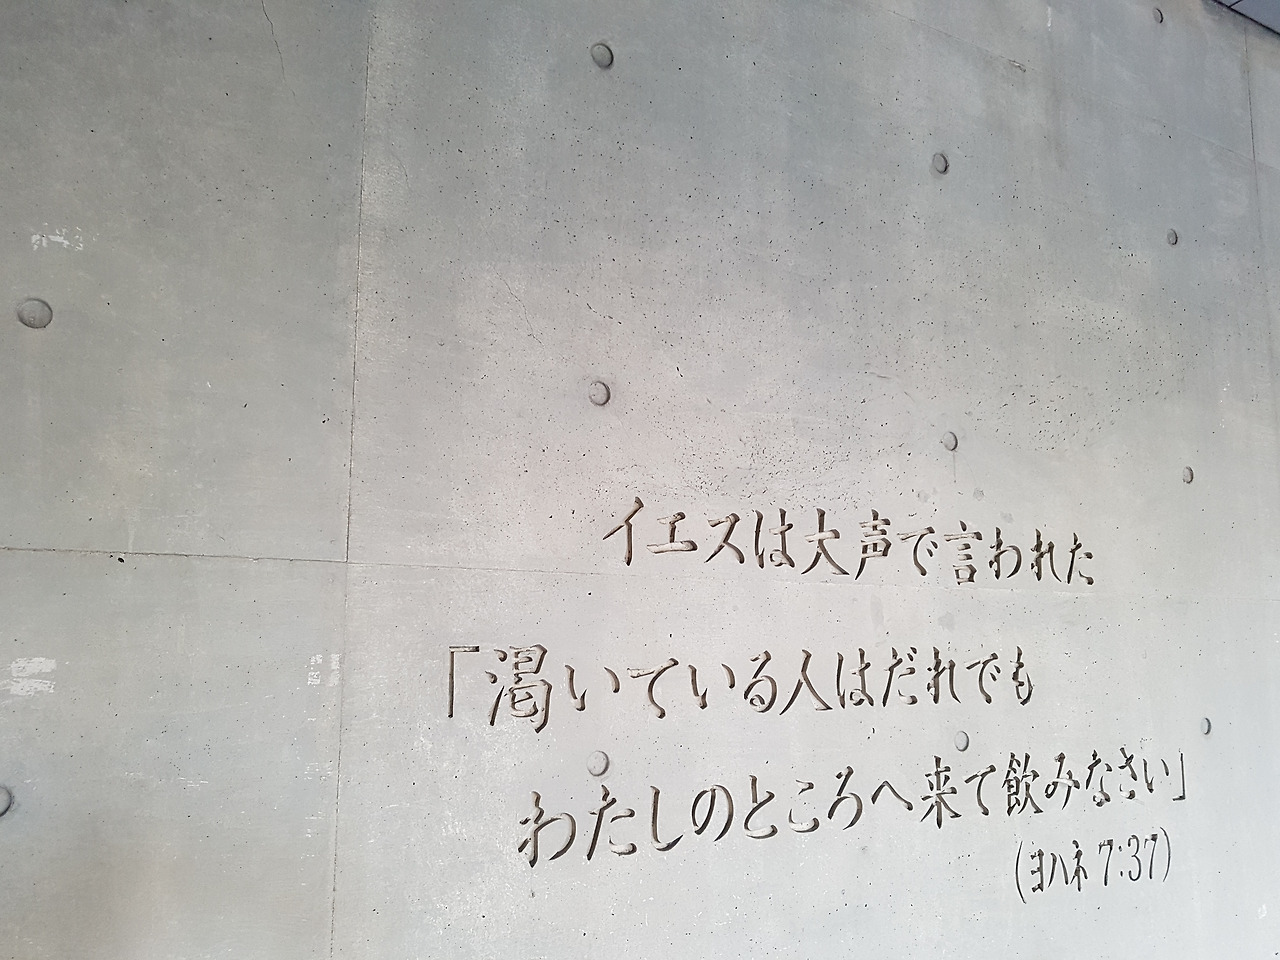 イエスは大声で言われた
「渇いている人はだれでも
わたしのところへ来て飲みなさい」
(ヨハネ 7:37)